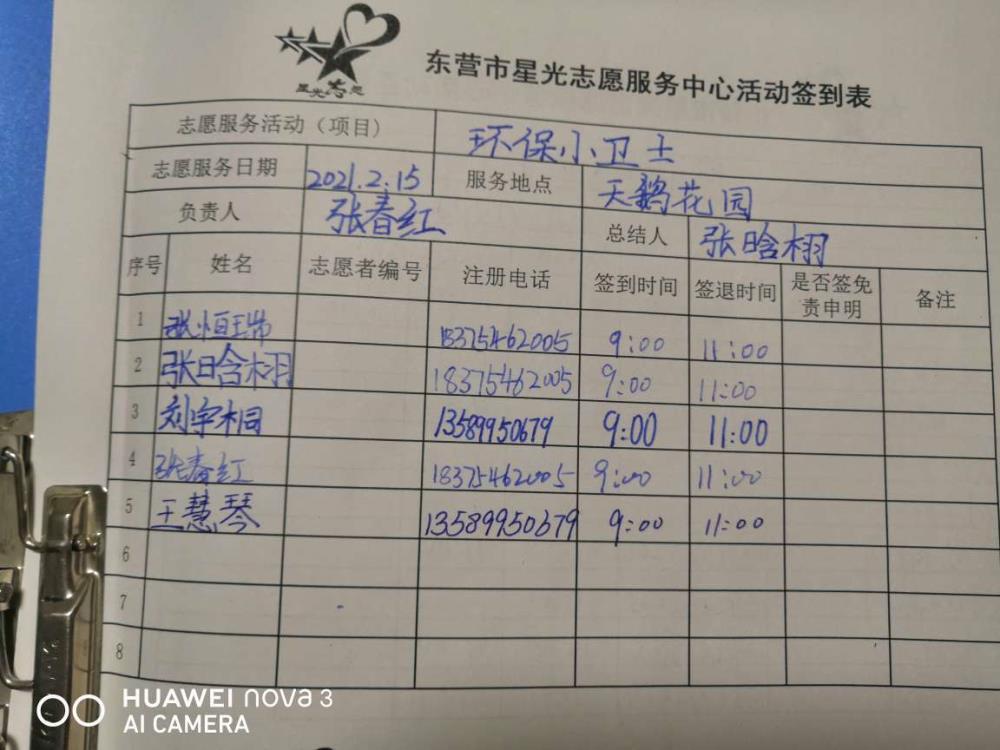 星光志愿
东营市星光志愿服务中心活动签到表
志愿服务活动（项目） 环保小卫士
志愿服务日期 2021.2.15 服务地点 天鹅花园
负责人 张春红 总结人 张晗栩
序号 姓名 志愿者编号 注册电话 签到时间 签退时间 是否签免责申明 备注
1 张恒瑞 18375462005 9:00 11:00
2 张晗栩 18375462005 9:00 11:00
3 刘宇桐 13589950679 9:00 11:00
4 张春红 18375462005 9:00 11:00
5 王慧琴 13589950679 9:00 11:00
6
7
8
HUAWEI nova 3
AI CAMERA